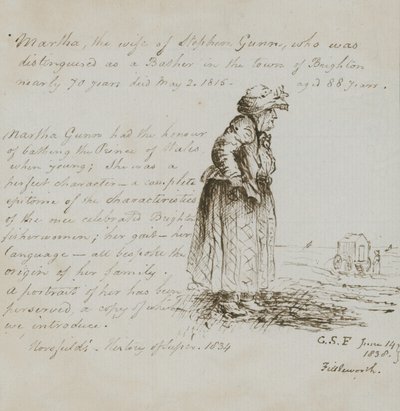 Martha, the wife of Stephen Gunn, who was
distinguised as a Bather in the town of Brighton
nearly 70 years died May 2. 1815 - aged 88 years.
Martha Gunn had the honour
of bathing the Prince of Wales
when young; she was a
perfect character - a complete
epitome of the characteristics
of the once celebrated Brighton
fisherwomen; her gait - her
language - all bespoke the
origin of her family.
A portrait of her has been
perserved, a copy of which
we introduce.
Horsfield's - History of Sussex. 1834
C.S.F June 14
1838.
Fittleworth.